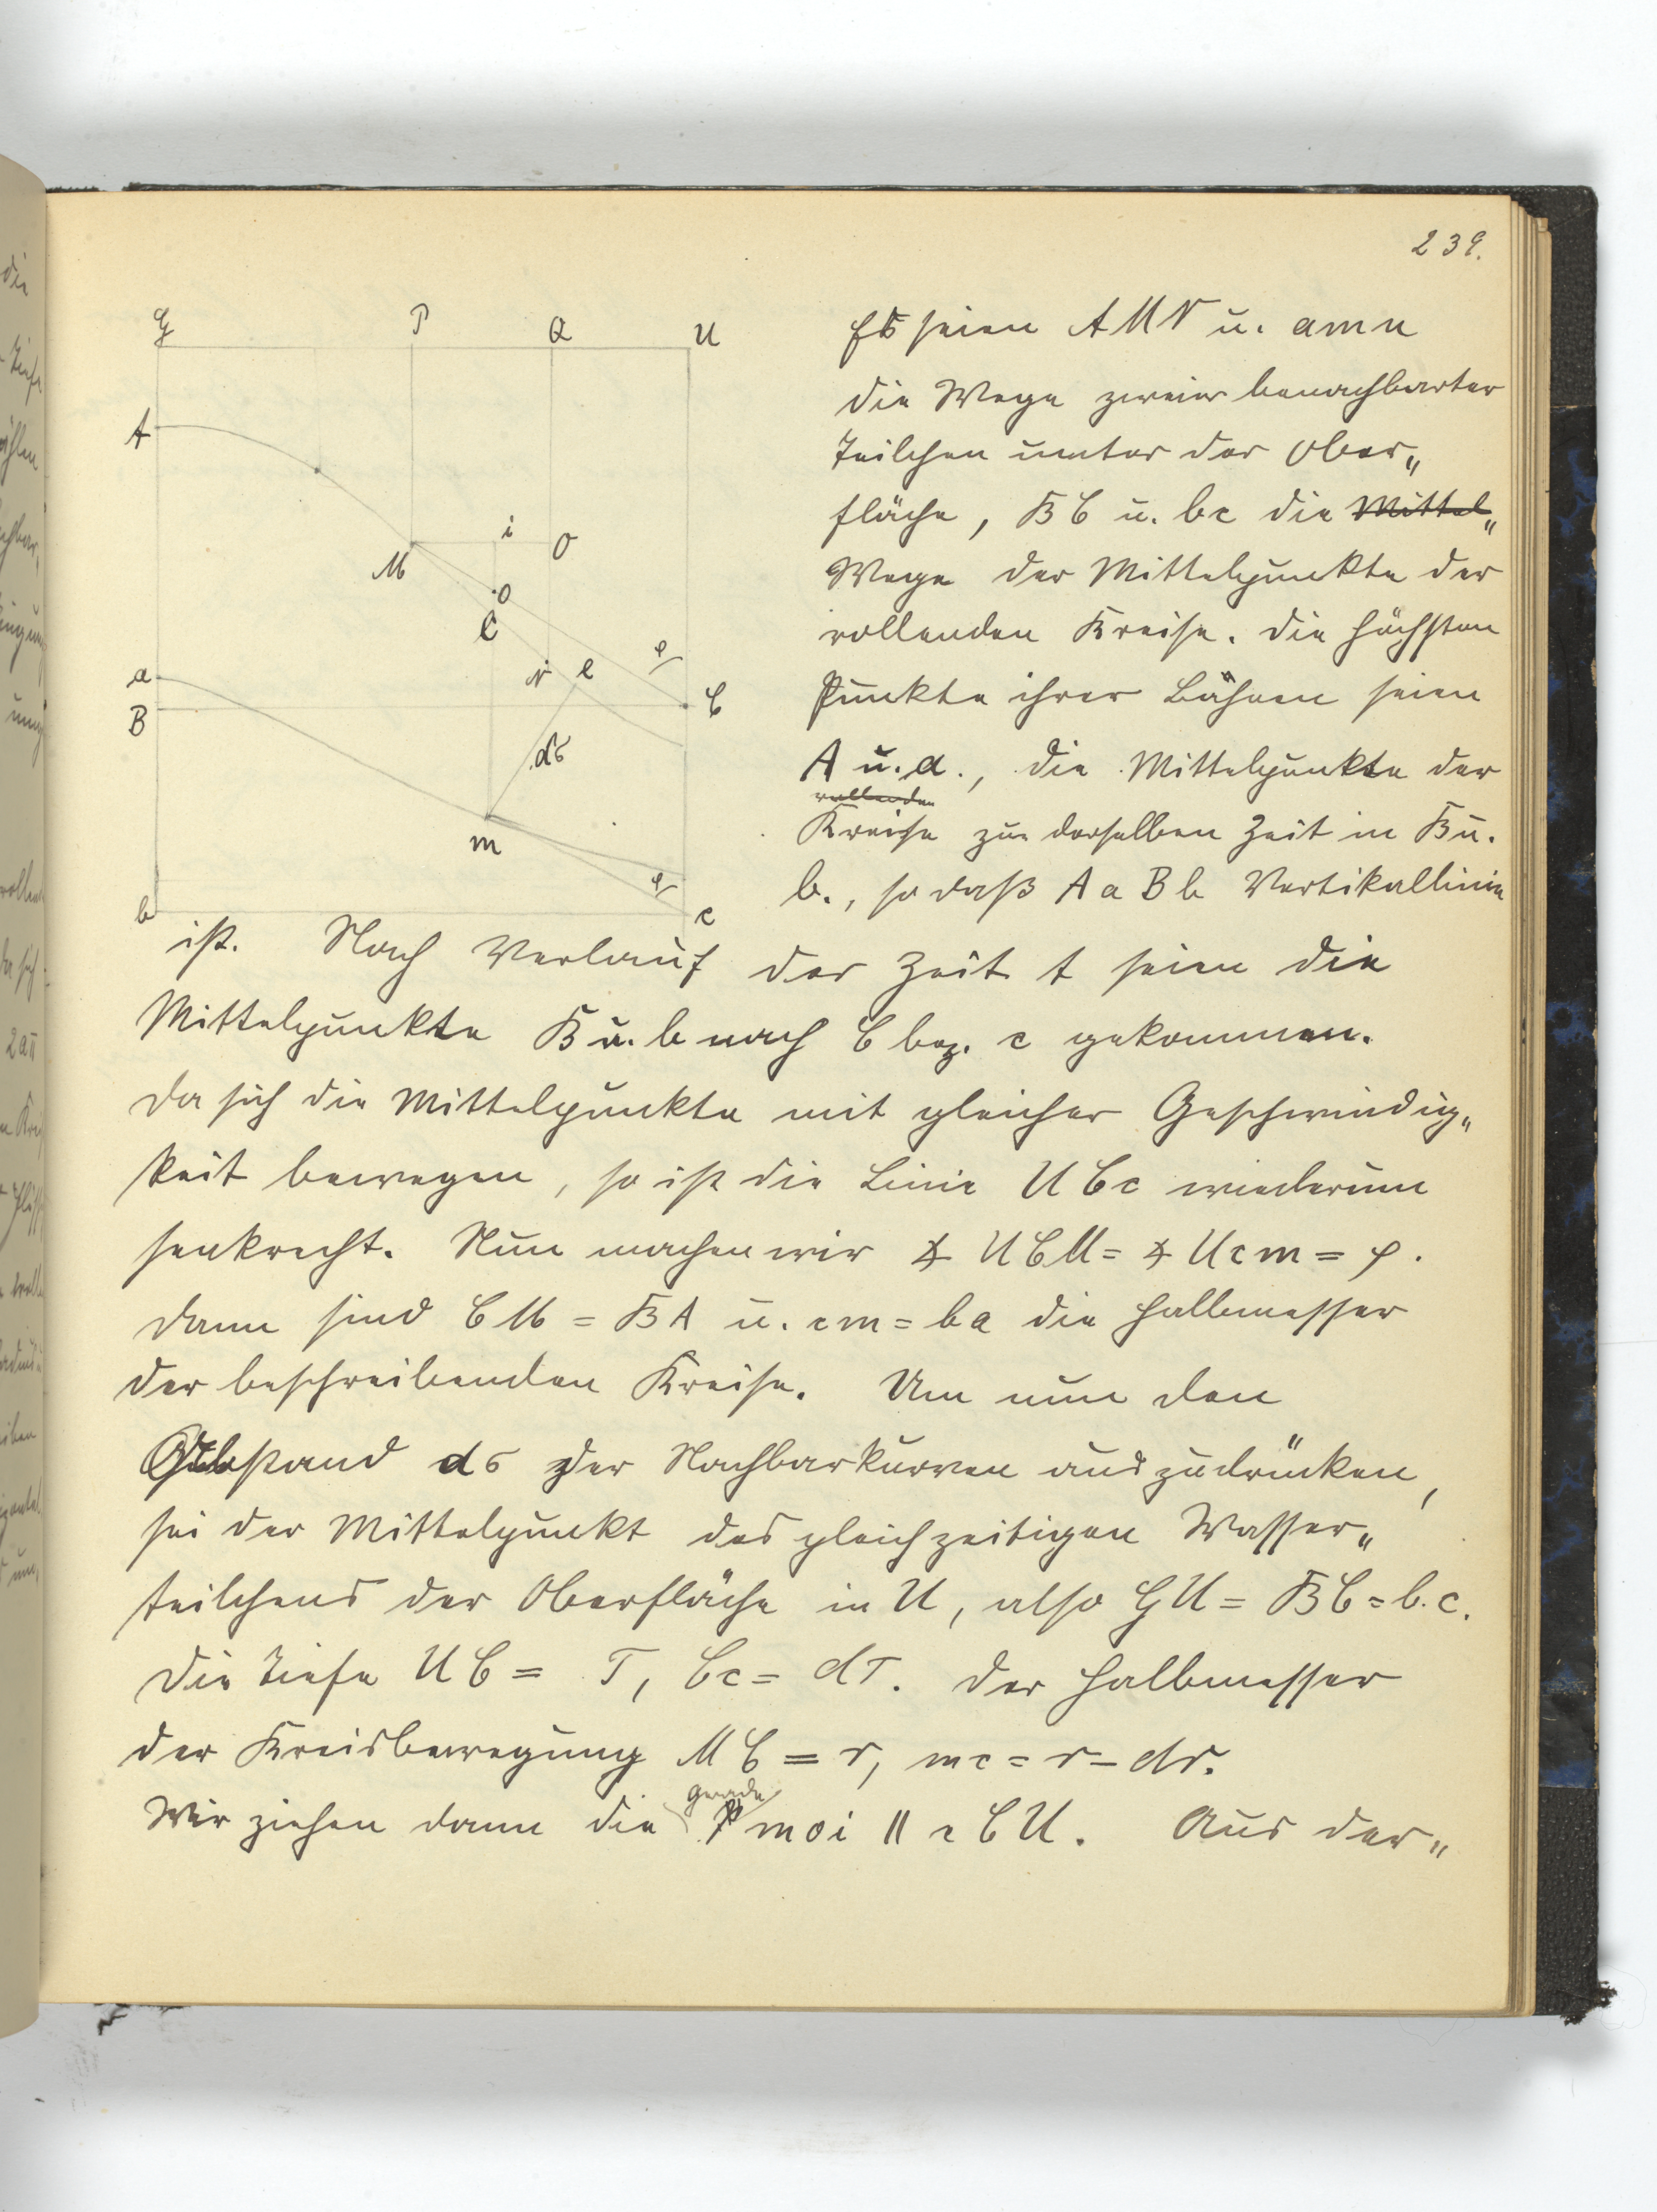 239.
G P Q U
A
M i O
o
C
a
B
N e φ C
dσ
m φ
b c
Es seien A M N u. a m n
die Wege zweier benachbarter
Teilchen unter der Ober„
fläche, B C u. b c die Mittel„
Wege der Mittelpunkte der
rollenden Kreise. Die höchsten
Punkte ihrer Bahnen seien
A u. a., die Mittelpunkte der
rollenden
Kreise zur derselben Zeit in B u.
b., so daß A a B b Vertikallinie
ist. Nach Verlauf der Zeit t seien die
Mittelpunkte B u. b nach C bez. c gekommen.
Da sich die Mittelpunkte mit gleicher Geschwindig„
keit bewegen, so ist die Linie U C c wiederum
senkrecht. Nun machen wir ∡ U C M = ∡ U c m = φ.
Dann sind C M = B A u. c m = b a die Halbmesser
der beschreibenden Kreise. Um nun den
Abstand dσ der Nachbarkurven auszudrücken,
sei der Mittelpunkt des gleichzeitigen Wasser„
teilchens der Oberfläche in U, also G U = B C = b. c.
Die Tiefe U C = T, C c = dT. Der Halbmesser
der Kreisbewegung M C = r, m c = r – dr.
gerade
Wir ziehen dann die m o i || c C U. Aus der„